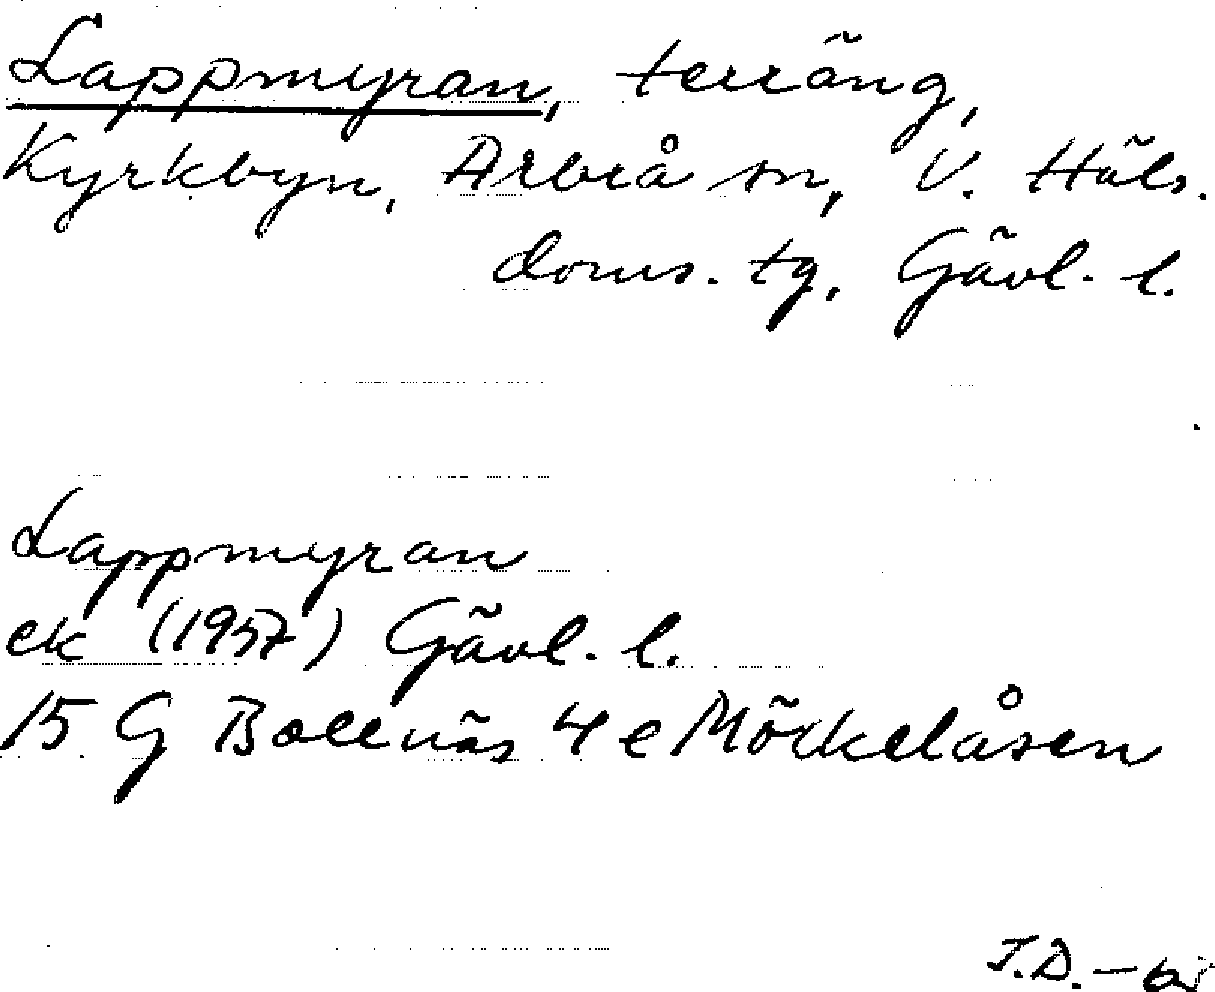 Lappmyran, terräng,
Kyrkbyn, Arbrå sn, V. Häls.
doms. tg, Gävl. l.
Lappmyran
ek (1957) Gävl. l.
15 G Bollnäs 4 e Möckelåsen
J.D. –